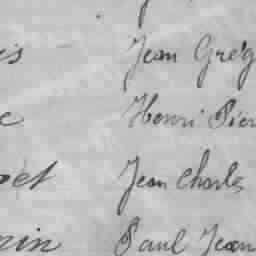 is Jean Grég
e Henri Pier
et Jean Charles
in Paul Jean